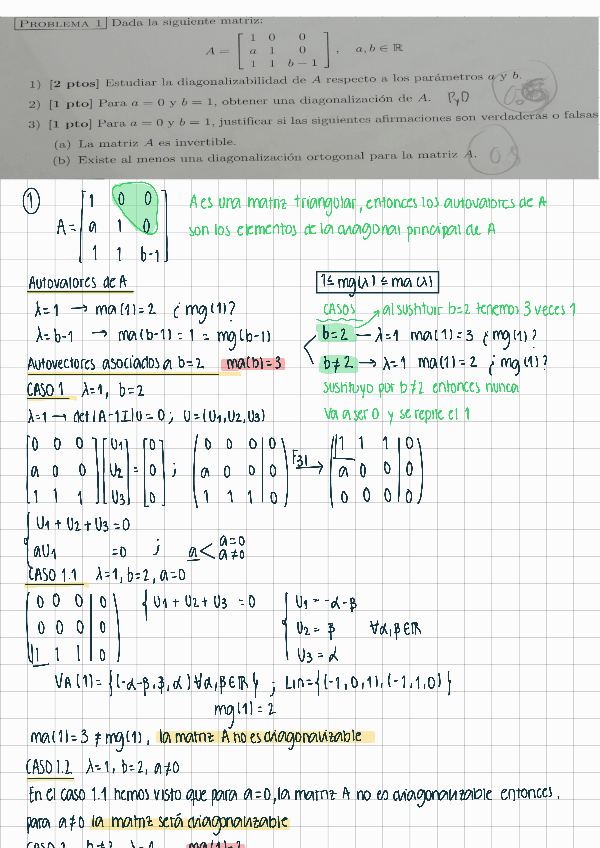 PROBLEMA 1 Dada la siguiente matriz:
A = [ 1 0 0
a 1 0
1 1 b − 1 ] , a, b ∈ ℝ
1) [2 ptos] Estudiar la diagonalizabilidad de A respecto a los parámetros a y b.
2) [1 pto] Para a = 0 y b = 1, obtener una diagonalización de A. P y D
3) [1 pto] Para a = 0 y b = 1, justificar si las siguientes afirmaciones son verdaderas o falsas
(a) La matriz A es invertible.
(b) Existe al menos una diagonalización ortogonal para la matriz A.
① A = [ 1 0 0
a 1 0
1 1 b-1 ]
A es una matriz triangular, entonces los autovalores de A
son los elementos de la diagonal principal de A
Autovalores de A
λ=1 → ma(1)=2 ¿mg(1)?
λ=b-1 → ma(b-1)=1=mg(b-1)
1≤mg(λ)≤ma(λ)
CASOS → al sustituir b=2 tenemos 3 veces 1
b=2 – λ=1 ma(1)=3 ¿mg(1)?
b≠2 → λ=1 ma(1)=2 ¿mg(1)?
sustituyo por b≠2 entonces nunca
va a ser 0 y se repite el 1
Autovectores asociados a b=2 ma(b)=3
CASO 1 λ=1, b=2
λ=1 → det|A-1I|U=0; U=(U1,U2,U3)
[ 0 0 0 ] [ U1 ] [ 0 ] ( 0 0 0 | 0 ) ( 1 1 1 | 0 )
[ a 0 0 ] [ U2 ] = [ 0 ] ; ( a 0 0 | 0 ) F31 → ( a 0 0 | 0 )
[ 1 1 1 ] [ U3 ] [ 0 ] ( 1 1 1 | 0 ) ( 0 0 0 | 0 )
{ U1+U2+U3=0
aU1 =0 ; a < a=0
a≠0
CASO 1.1 λ=1, b=2, a=0
( 0 0 0 | 0 ) { U1+U2+U3=0 { U1=-α-β
( 0 0 0 | 0 ) U2=β ∀α,β∈ℝ
( 1 1 1 | 0 ) U3=α
VA(1)={(-α-β,β,α)∀α,β∈ℝ} ; Lin={(-1,0,1),(-1,1,0)}
mg(1)=2
ma(1)=3≠mg(1), la matriz A no es diagonalizable
CASO 1.2 λ=1, b=2, a≠0
En el caso 1.1 hemos visto que para a=0, la matriz A no es diagonalizable entonces,
para a≠0 la matriz será diagonalizable